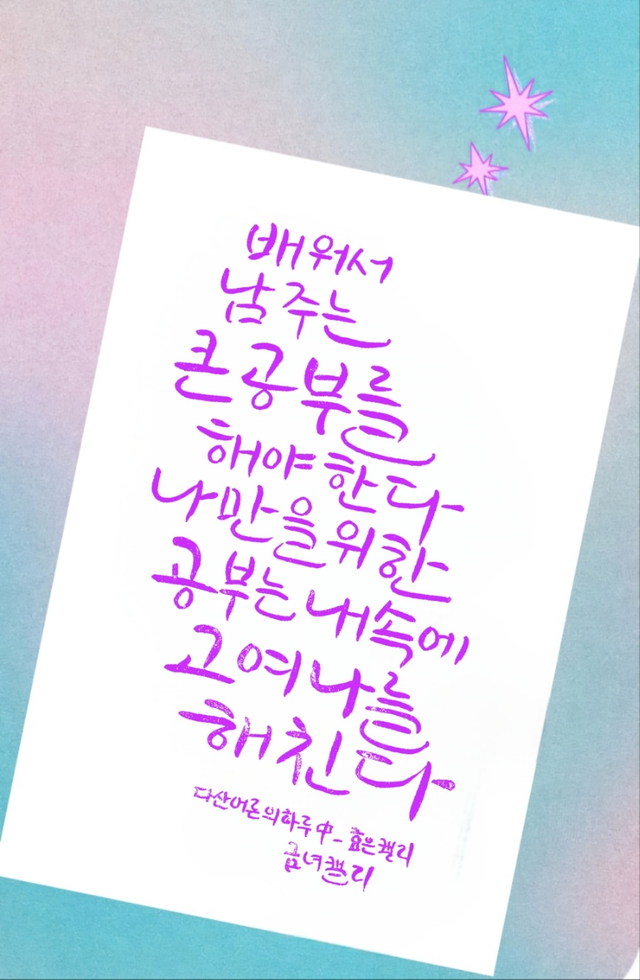 배워서
남 주는
큰 공부를
해야 한다
나만을 위한
공부는 내 속에
고여 나를
해친다
다산어른의 하루 中 _ 효은캘리
금녀캘리